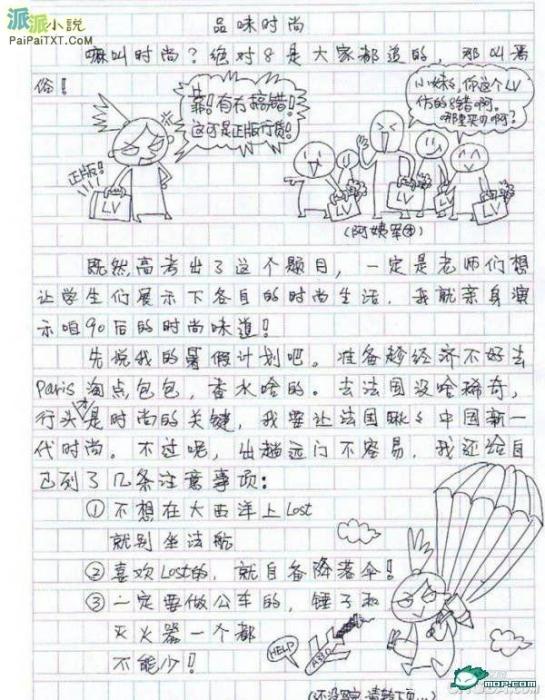 派派小說
PaiPaiTXT.Com
品味时尚
嘛叫时尚？绝对8是大家都追的，那叫恶
俗！
靠！有冇搞错！
这可是正版行货！
小妹，你这个LV
仿的8错啊。
哪里买的啊？
正版！
LV
LV
LV
LV
LV
（阿姨军团）
既然高考出了这个题目，一定是老师们想
让学生们展示下各自的时尚生活，我就亲身演
示咱90后的时尚味道！
先说我的暑假计划吧。准备趁经济不好去
Paris淘点包包，香水啥的。去法国没啥稀奇，
行头才是时尚的关键，我要让法国瞅瞅中国新一
代时尚。不过呢，出趟远门不容易，我还给自
己列了几条注意事项：
①不想在大西洋上Lost
就别坐法航
②喜欢Lost的，就自备降落伞！
③一定要做公车的，锤子和
灭火器一个都
不能少！
HELP
A330
（还没写完，请转下页...）
MOP.COM